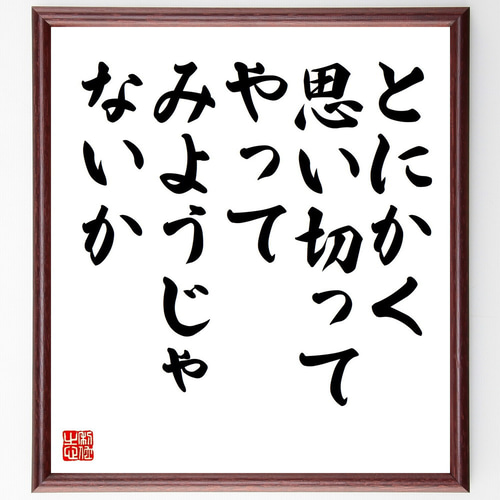 とにかく
思い切って
やって
みようじゃ
ないか